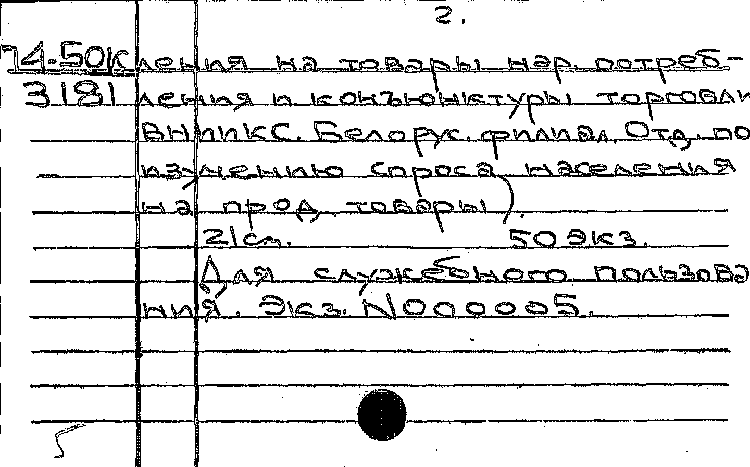 2.
74-50К ления на товары нар. потреб-
3181 ления и конъюнктуры торговли
ВНИИКС. Белорус. филиал. Отд. по
изучению спроса населения
на прод. товары).
21см. 50 экз.
Для служебного пользова
ния. Экз. N000005.